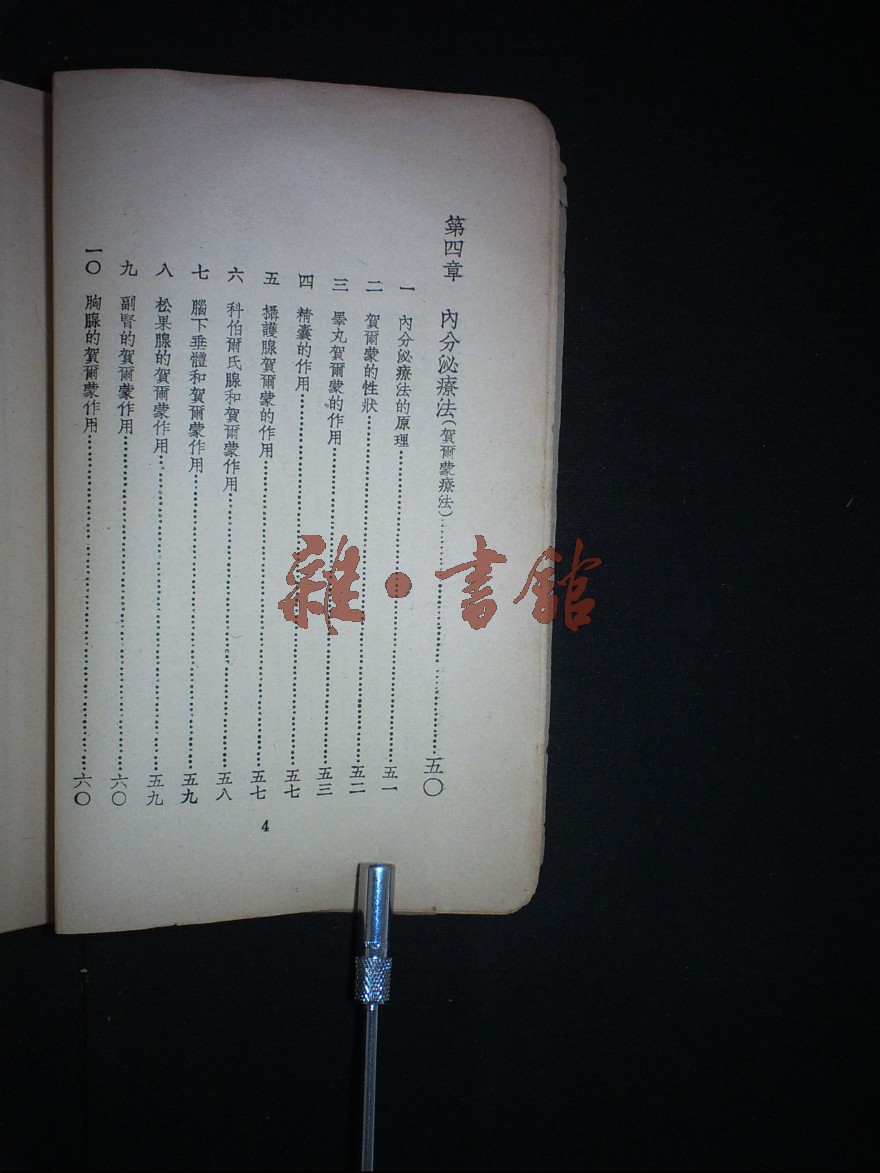 第四章 內分泌療法(賀爾蒙療法)……五〇
一 內分泌療法的原理……五一
二 賀爾蒙的性狀……五二
三 睾丸賀爾蒙的作用……五三
四 精囊的作用……五七
五 攝護腺賀爾蒙的作用……五七
六 科伯爾氏腺和賀爾蒙作用……五八
七 腦下垂體和賀爾蒙作用……五九
八 松果腺的賀爾蒙作用……五九
九 副腎的賀爾蒙作用……六〇
一〇 胸腺的賀爾蒙作用……六〇
4
雜·書館